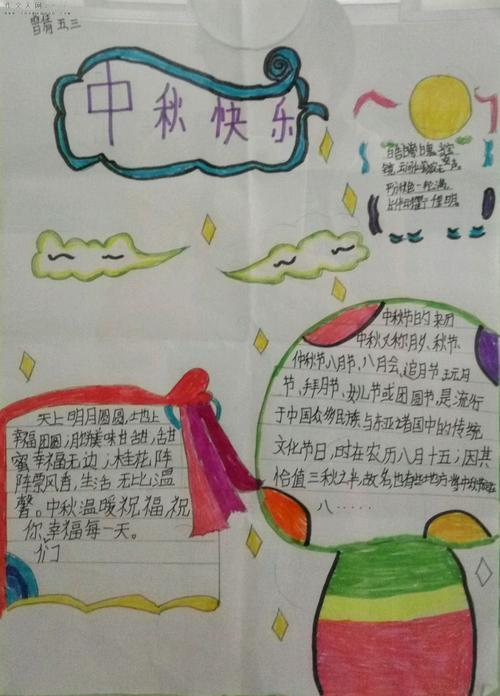 作文人网
五三
中秋快乐
中秋节的来历
中秋又称月夕、秋节、
仲秋节、八月节、八月会、追月节、玩月
节、拜月节、女儿节或团圆节,是流行
于中国众多民族与东亚诸国中的传统
文化节日,时在农历八月十五;因其
恰值三秋之半,故名,也有些地方
八……
天上明月圆圆,地上
幸福团圆;月饼美味甘甜,甜
蜜幸福无边;木桂花阵
阵飘香,生活无比温
馨。中秋温暖祝福,祝
你幸福每一天。
们